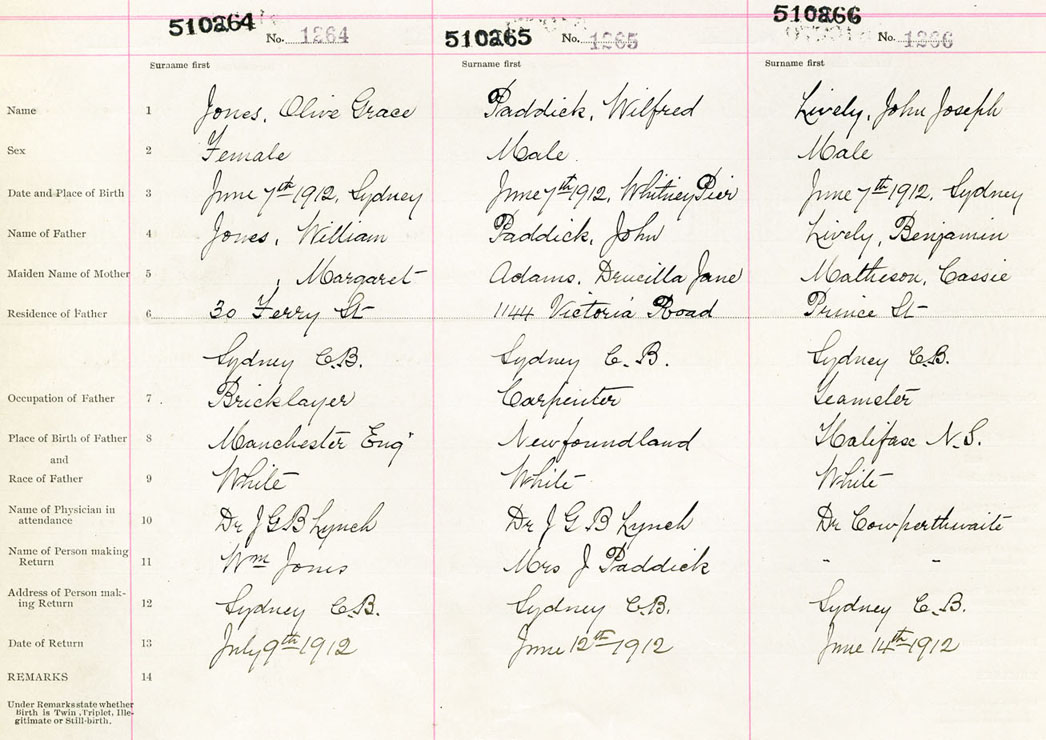 510264
No. 1264
510265
No. 1265
510266
No. 1266
Surname first
Surname first
Surname first
Name 1 Jones, Olive Grace Paddick, Wilfred Lively, John Joseph
Sex 2 Female Male Male
Date and Place of Birth 3 June 7th 1912, Sydney June 7th 1912, Whitney Pier June 7th 1912, Sydney
Name of Father 4 Jones, William Paddick, John Lively, Benjamin
Maiden Name of Mother 5 , Margaret Adams, Drucilla Jane Matheson, Cassie
Residence of Father 6 30 Ferry St 1144 Victoria Road Prince St
Sydney C.B. Sydney C.B. Sydney C.B.
Occupation of Father 7 Bricklayer Carpenter Teamster
Place of Birth of Father 8 Manchester Eng Newfoundland Halifax N.S.
and
Race of Father 9 White White White
Name of Physician in
attendance 10 Dr J G B Lynch Dr J G B Lynch Dr Cowperthwaite
Name of Person making
Return 11 Wm Jones Mrs J Paddick " "
Address of Person mak-
ing Return 12 Sydney C.B. Sydney C.B. Sydney C.B.
Date of Return 13 July 9th 1912 June 12th 1912 June 14th 1912
REMARKS 14
Under Remarks state whether
Birth is Twin, Triplet, Ille-
gitimate or Still-birth.